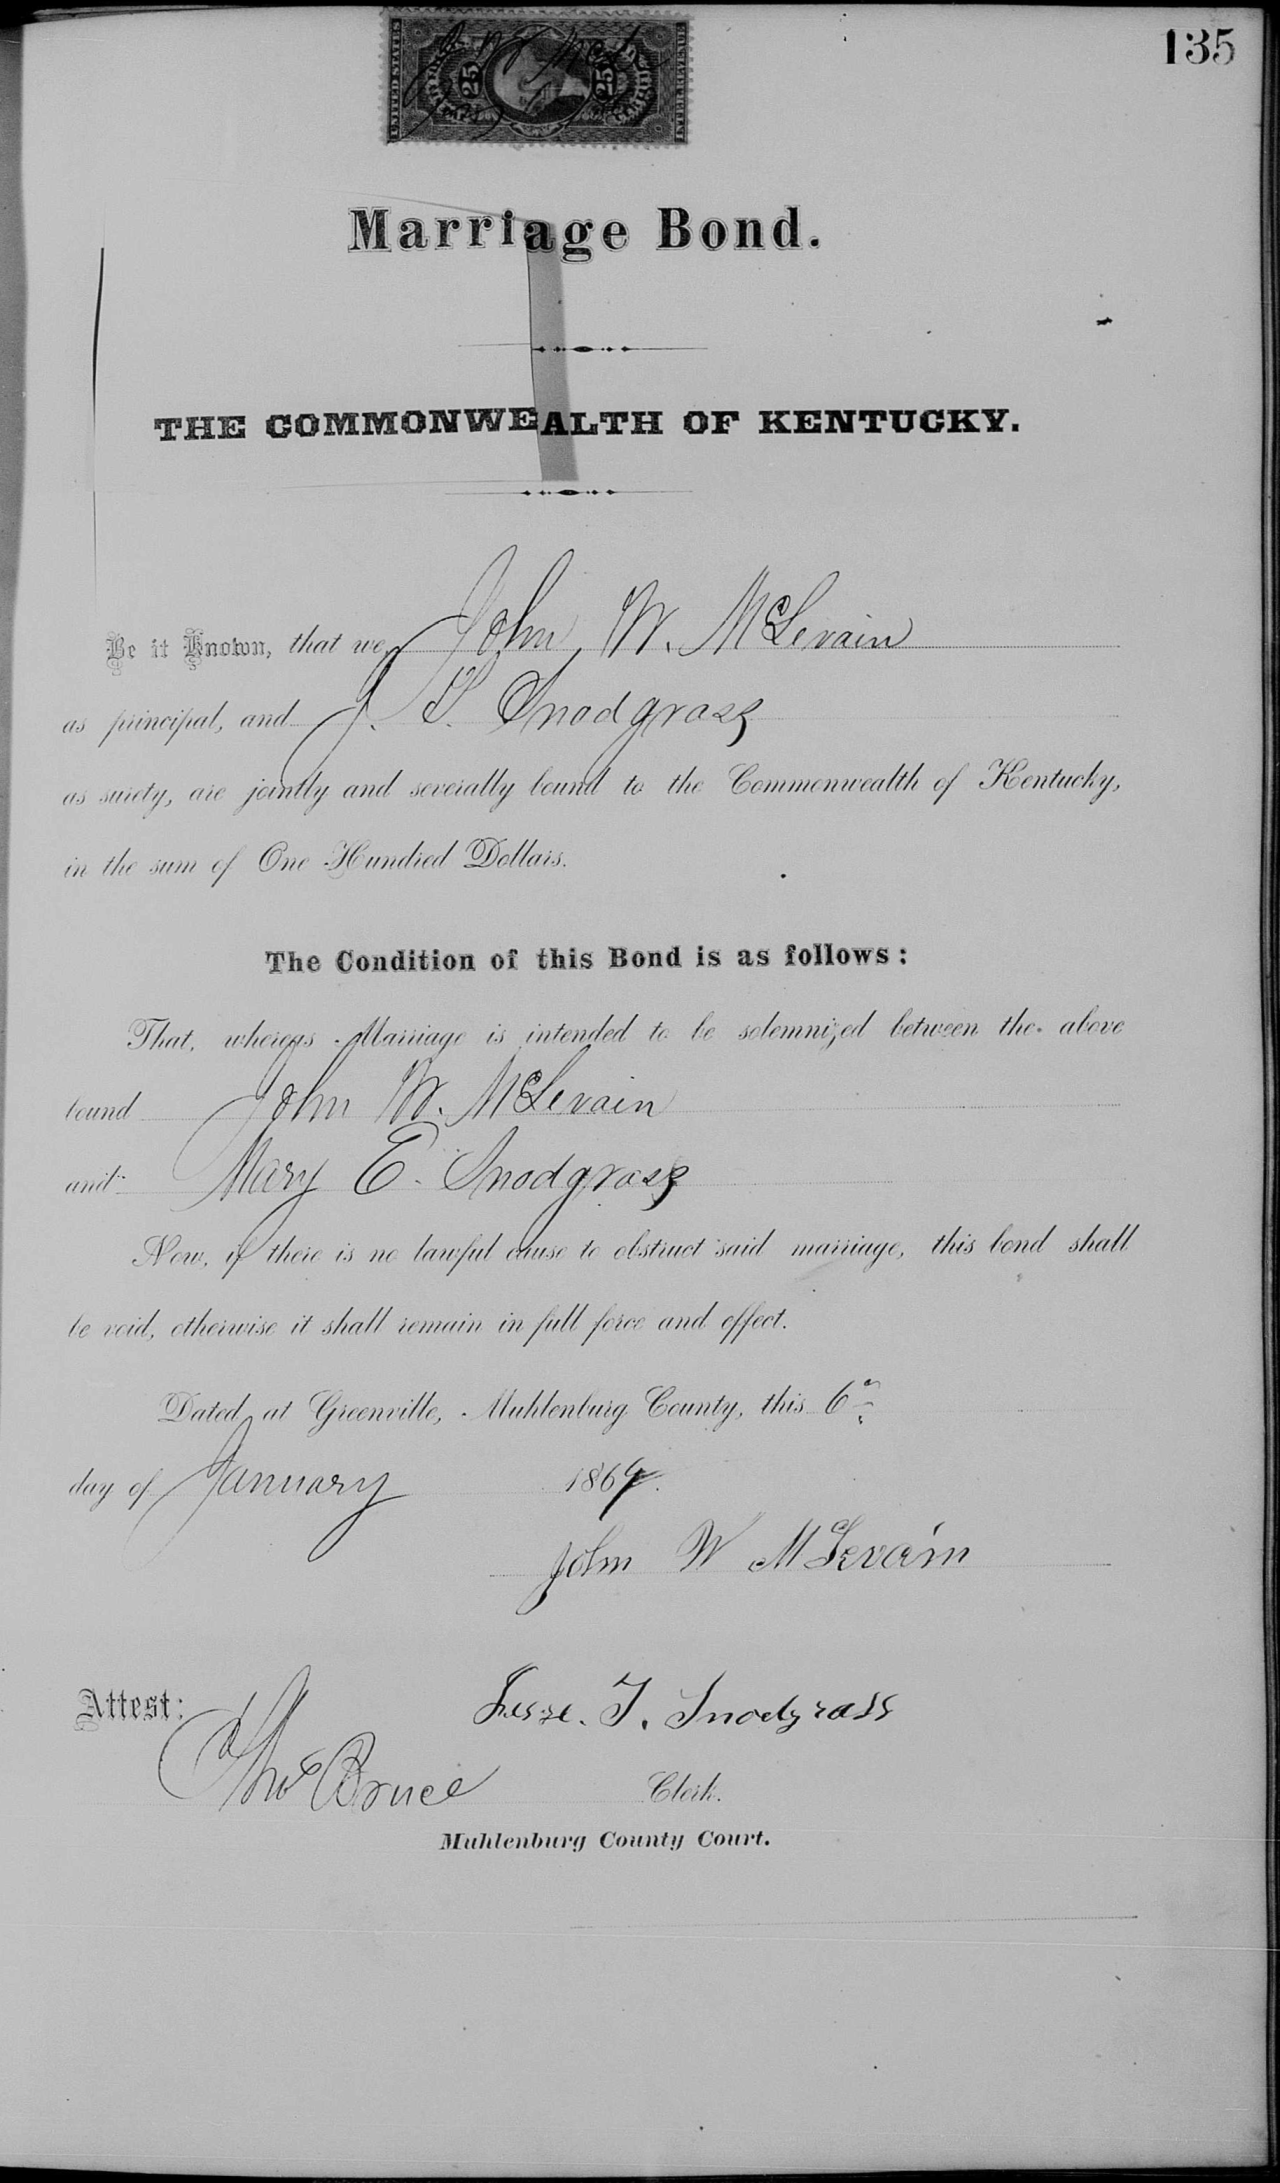 135
UNITED STATES
INTER. REVENUE
25
25
Marriage Bond.
THE COMMONWEALTH OF KENTUCKY.
Be it Known, that we, John W. McLevain
as principal, and J. T. Snodgrass
as surety, are jointly and severally bound to the Commonwealth of Kentucky,
in the sum of One Hundred Dollars.
The Condition of this Bond is as follows:
That, whereas Marriage is intended to be solemnized between the above
bound John W. McLevain
and Mary E. Snodgrass
Now, if there is no lawful cause to obstruct said marriage, this bond shall
be void, otherwise it shall remain in full force and effect.
Dated at Greenville, Muhlenburg County, this 6th
day of January 1869.
John W McLevain
Attest: Jesse. T. Snodgrass
Thos Bruce Clerk.
Muhlenburg County Court.